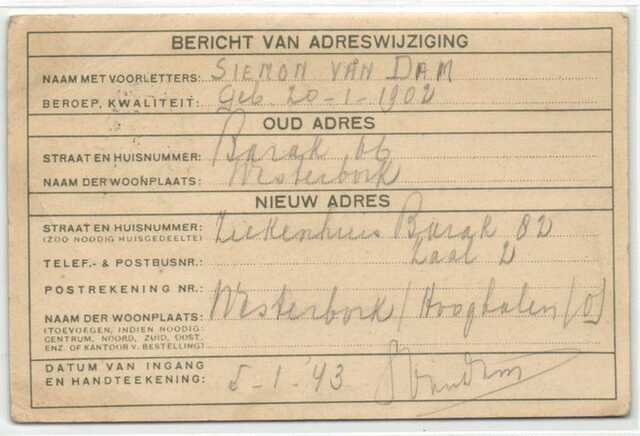 BERICHT VAN ADRESWIJZIGING
NAAM MET VOORLETTERS: SIEMON VAN DAM
BEROEP, KWALITEIT: Geb. 20-1-1902
OUD ADRES
STRAAT EN HUISNUMMER: Barak 66
NAAM DER WOONPLAATS: Westerbork
NIEUW ADRES
STRAAT EN HUISNUMMER: Ziekenhuis Barak 82
(ZOO NOODIG HUISGEDEELTE)
TELEF.- & POSTBUSNR.: Zaal 2
POSTREKENING NR.:
NAAM DER WOONPLAATS: Westerbork / Hooghalen / O
(TOEVOEGEN, INDIEN NOODIG:
CENTRUM, NOORD, ZUID, OOST,
ENZ. OF KANTOOR V. BESTELLING)
DATUM VAN INGANG
EN HANDTEEKENING: 5-1-'43 SvanDam